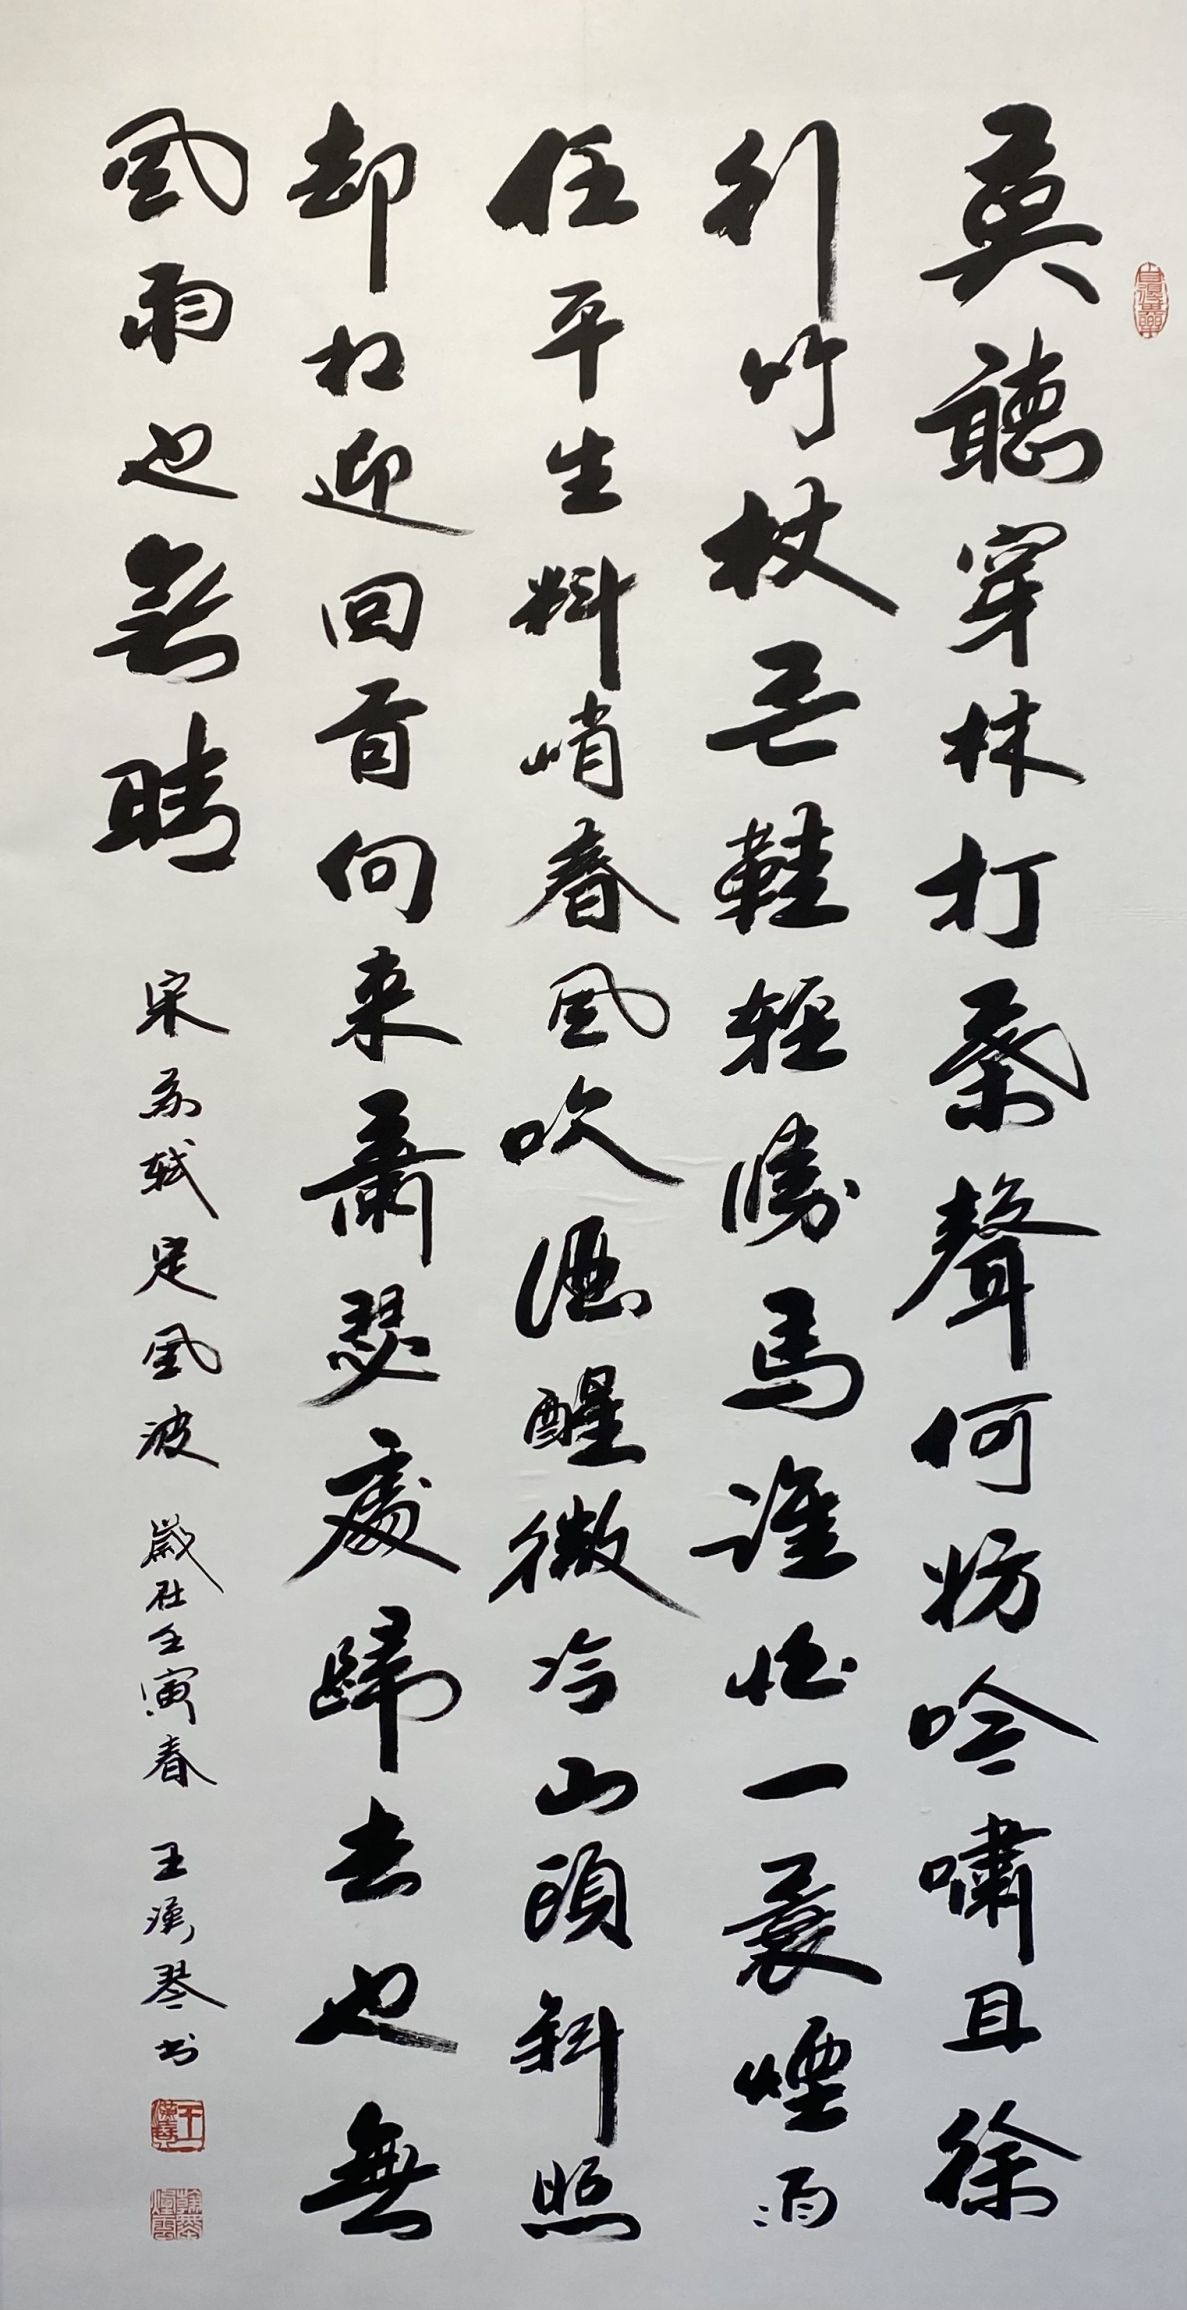 莫聽穿林打葉聲何妨吟嘯且徐
行竹杖芒鞋輕勝馬誰怕一蓑煙雨
任平生料峭春風吹酒醒微冷山頭斜照
却相迎回首向來蕭瑟處歸去也無
風雨也無晴
宋蘇軾定風波 歲在壬寅春 王漢琴書